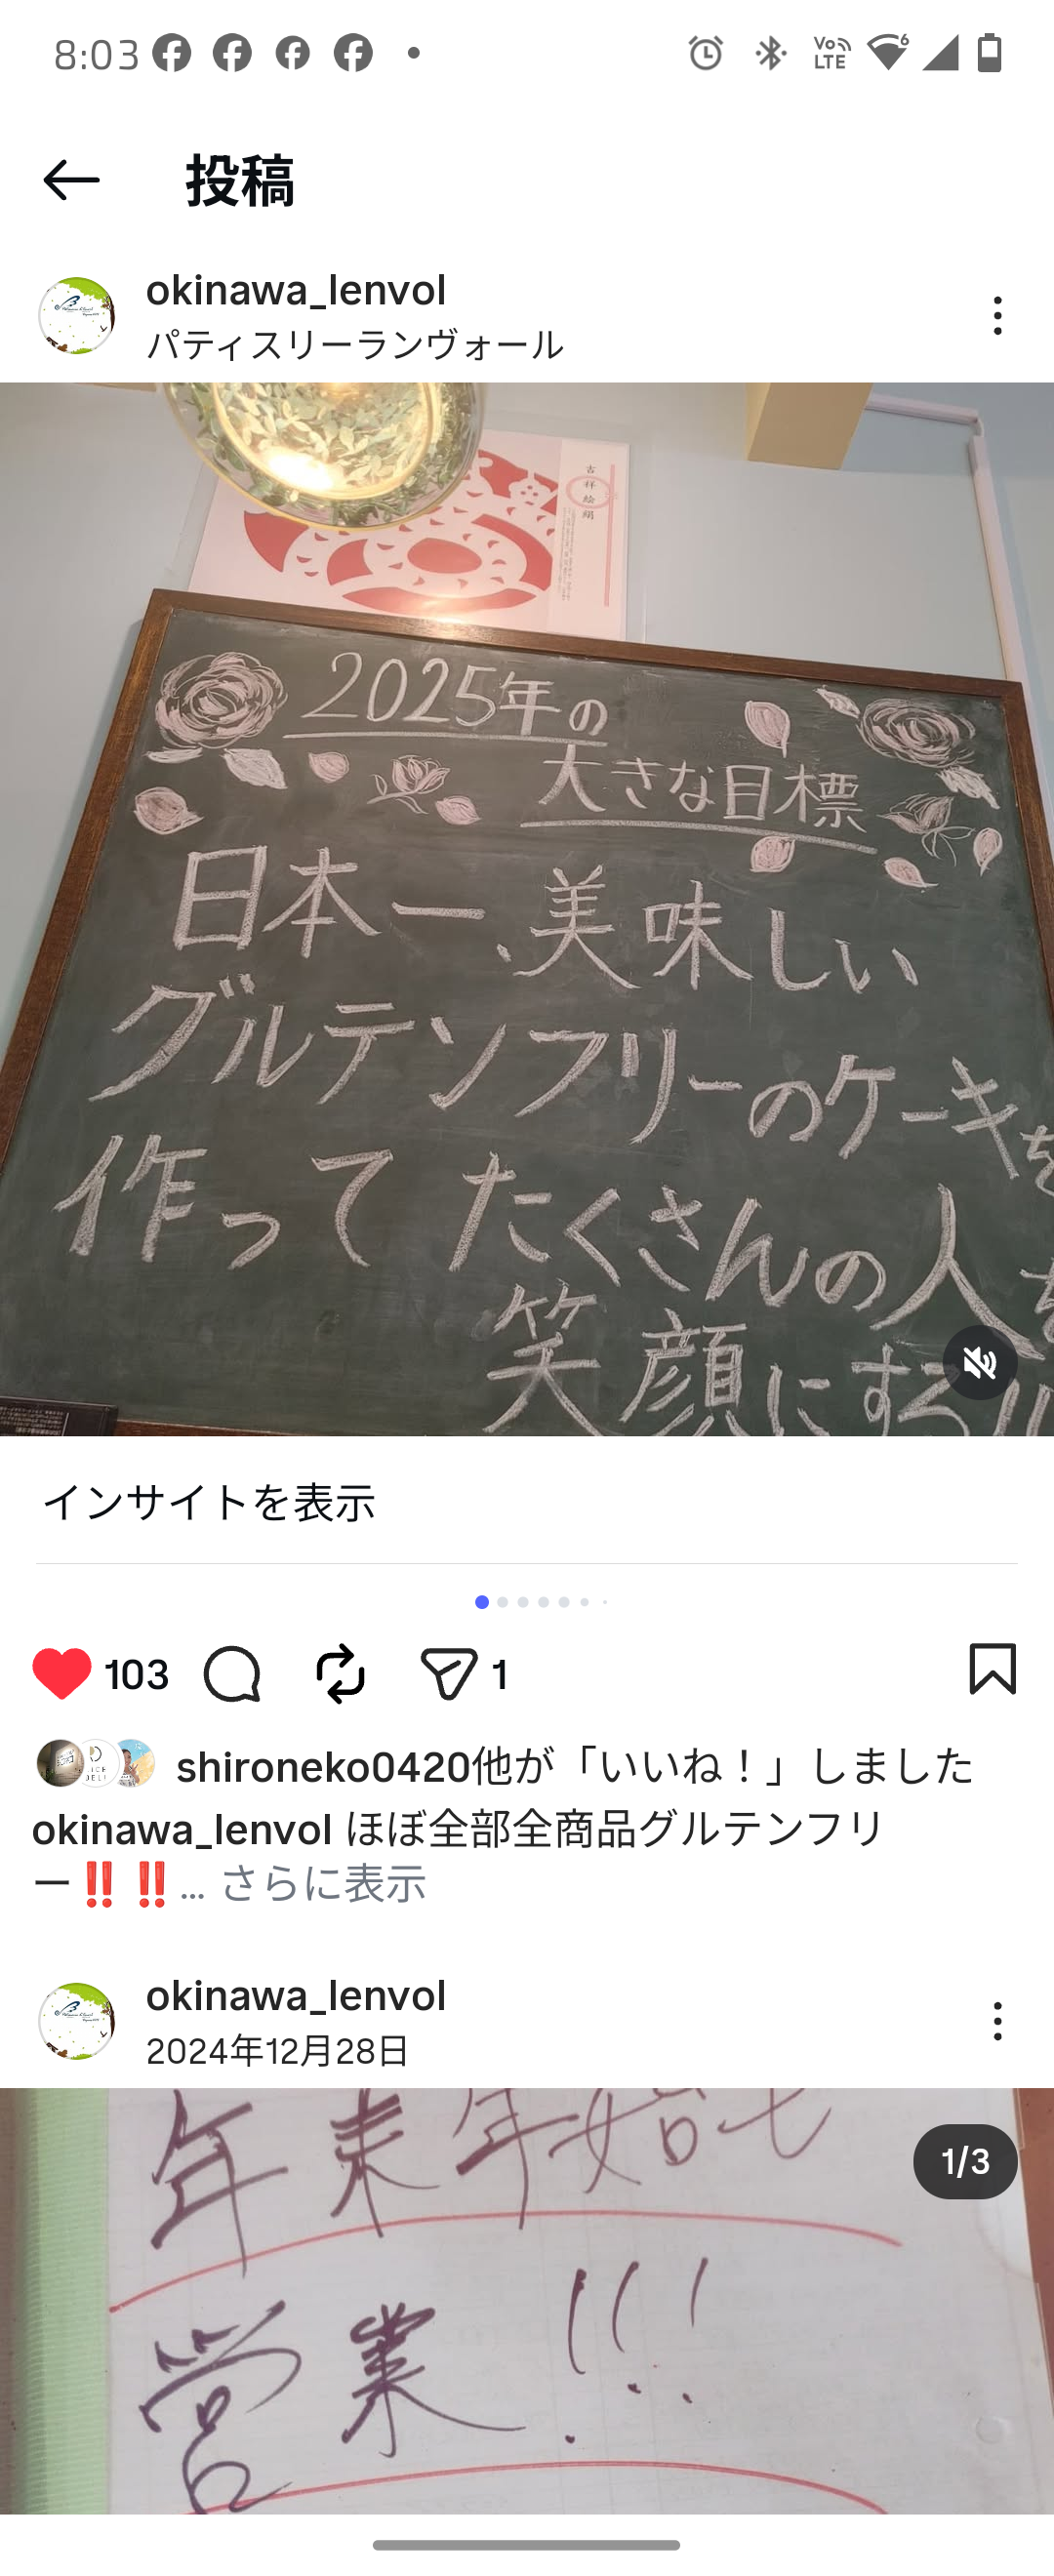 8:03
Vo LTE
6
投稿
okinawa_lenvol
パティスリーランヴォール
吉祥絵絹
2025年の
大きな目標
日本一、美味しい
グルテンフリーのケーキを
作って たくさんの人を
笑顔にする!!
インサイトを表示
103
1
shironeko0420他が「いいね！」しました
okinawa_lenvol ほぼ全部全商品グルテンフリ
ー‼️‼️... さらに表示
okinawa_lenvol
2024年12月28日
1/3
年末年始も
営業!!!